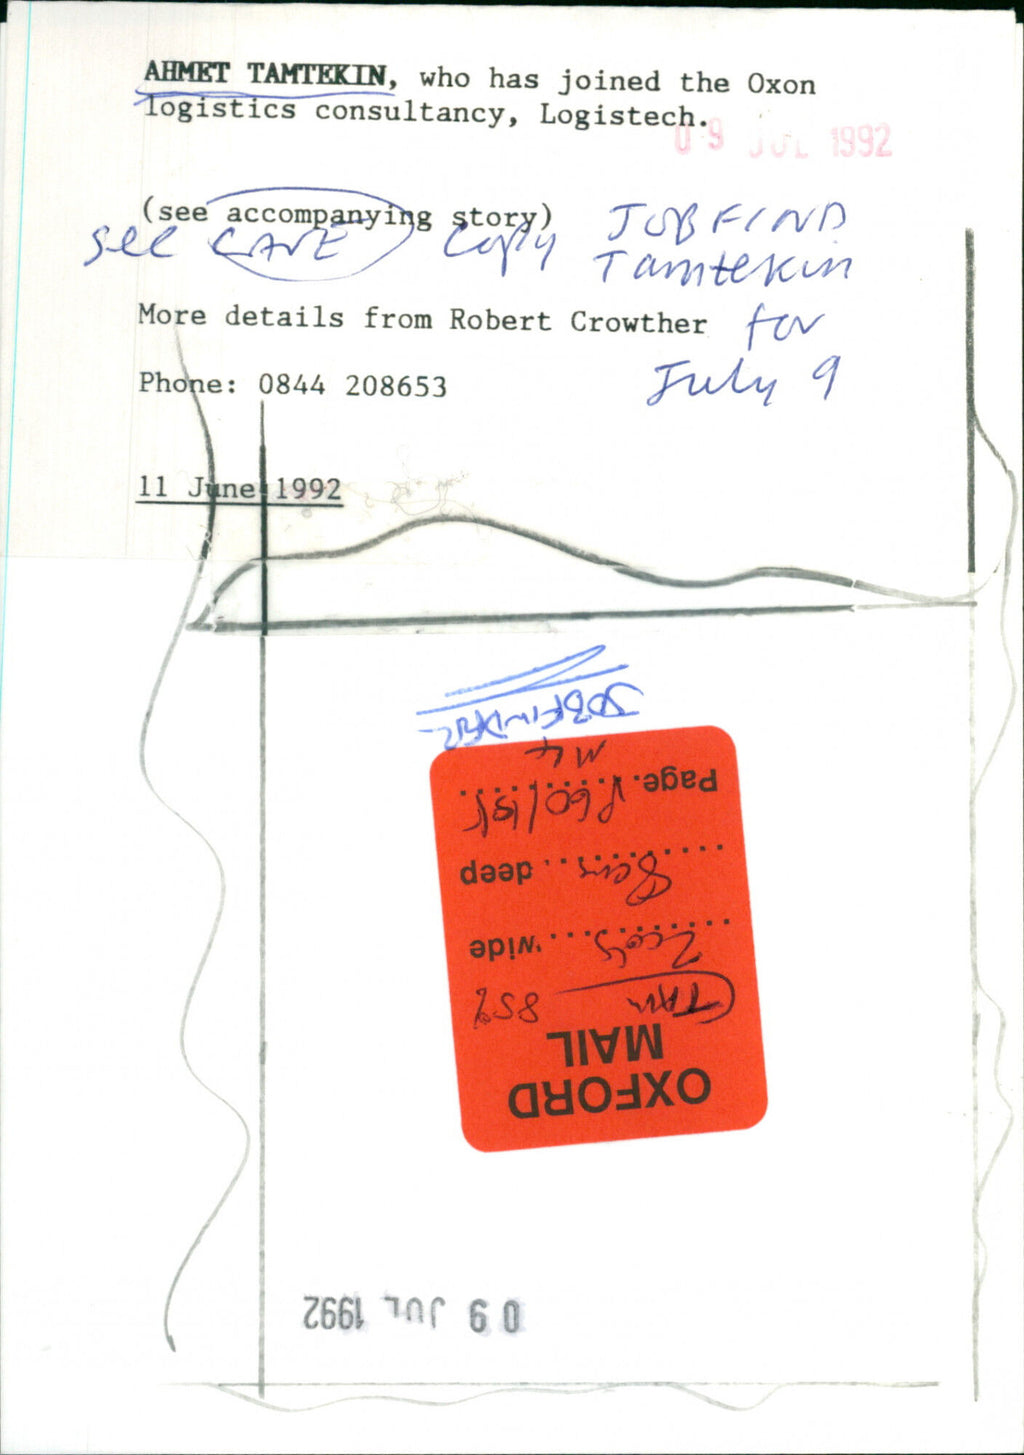 AHMET TAMTEKIN, who has joined the Oxon
logistics consultancy, Logistech.
09 JUL 1992
(see accompanying story)
see CAVE copy JOBFIND
Tamtekin
More details from Robert Crowther for
Phone: 0844 208653 July 9
11 June 1992
JOBFINDER
OXFORD
MAIL
TAM 852
2cols wide
8cms deep
Page. P60/151
M4
09 JUL 1992